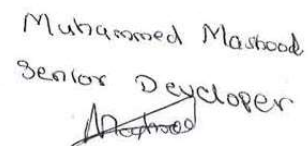 Muhammed Mashood
Senior Developer